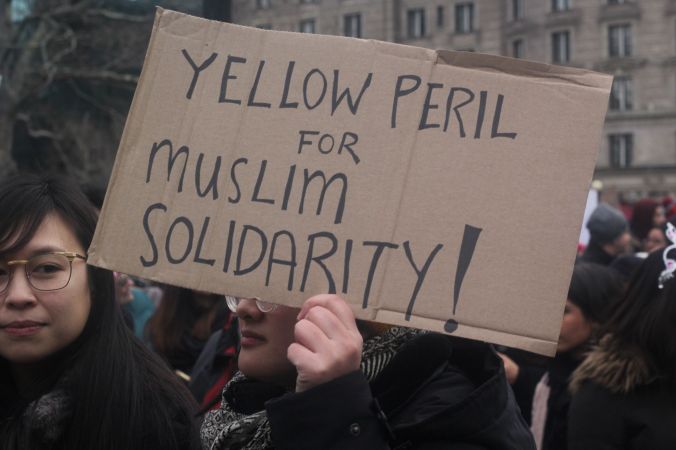 YELLOW PERIL
FOR
MUSLIM
SOLIDARITY!